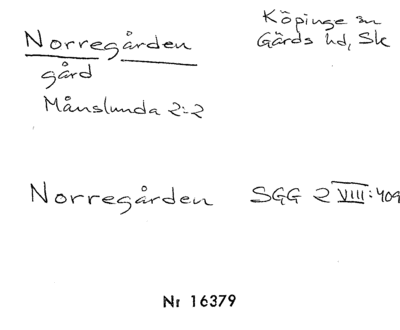 Norregården
Köpinge sn
Gärds hd, Sk
gård
Månslunda 2:2
Norregården SGG 2 VIII:409
Nr 16379